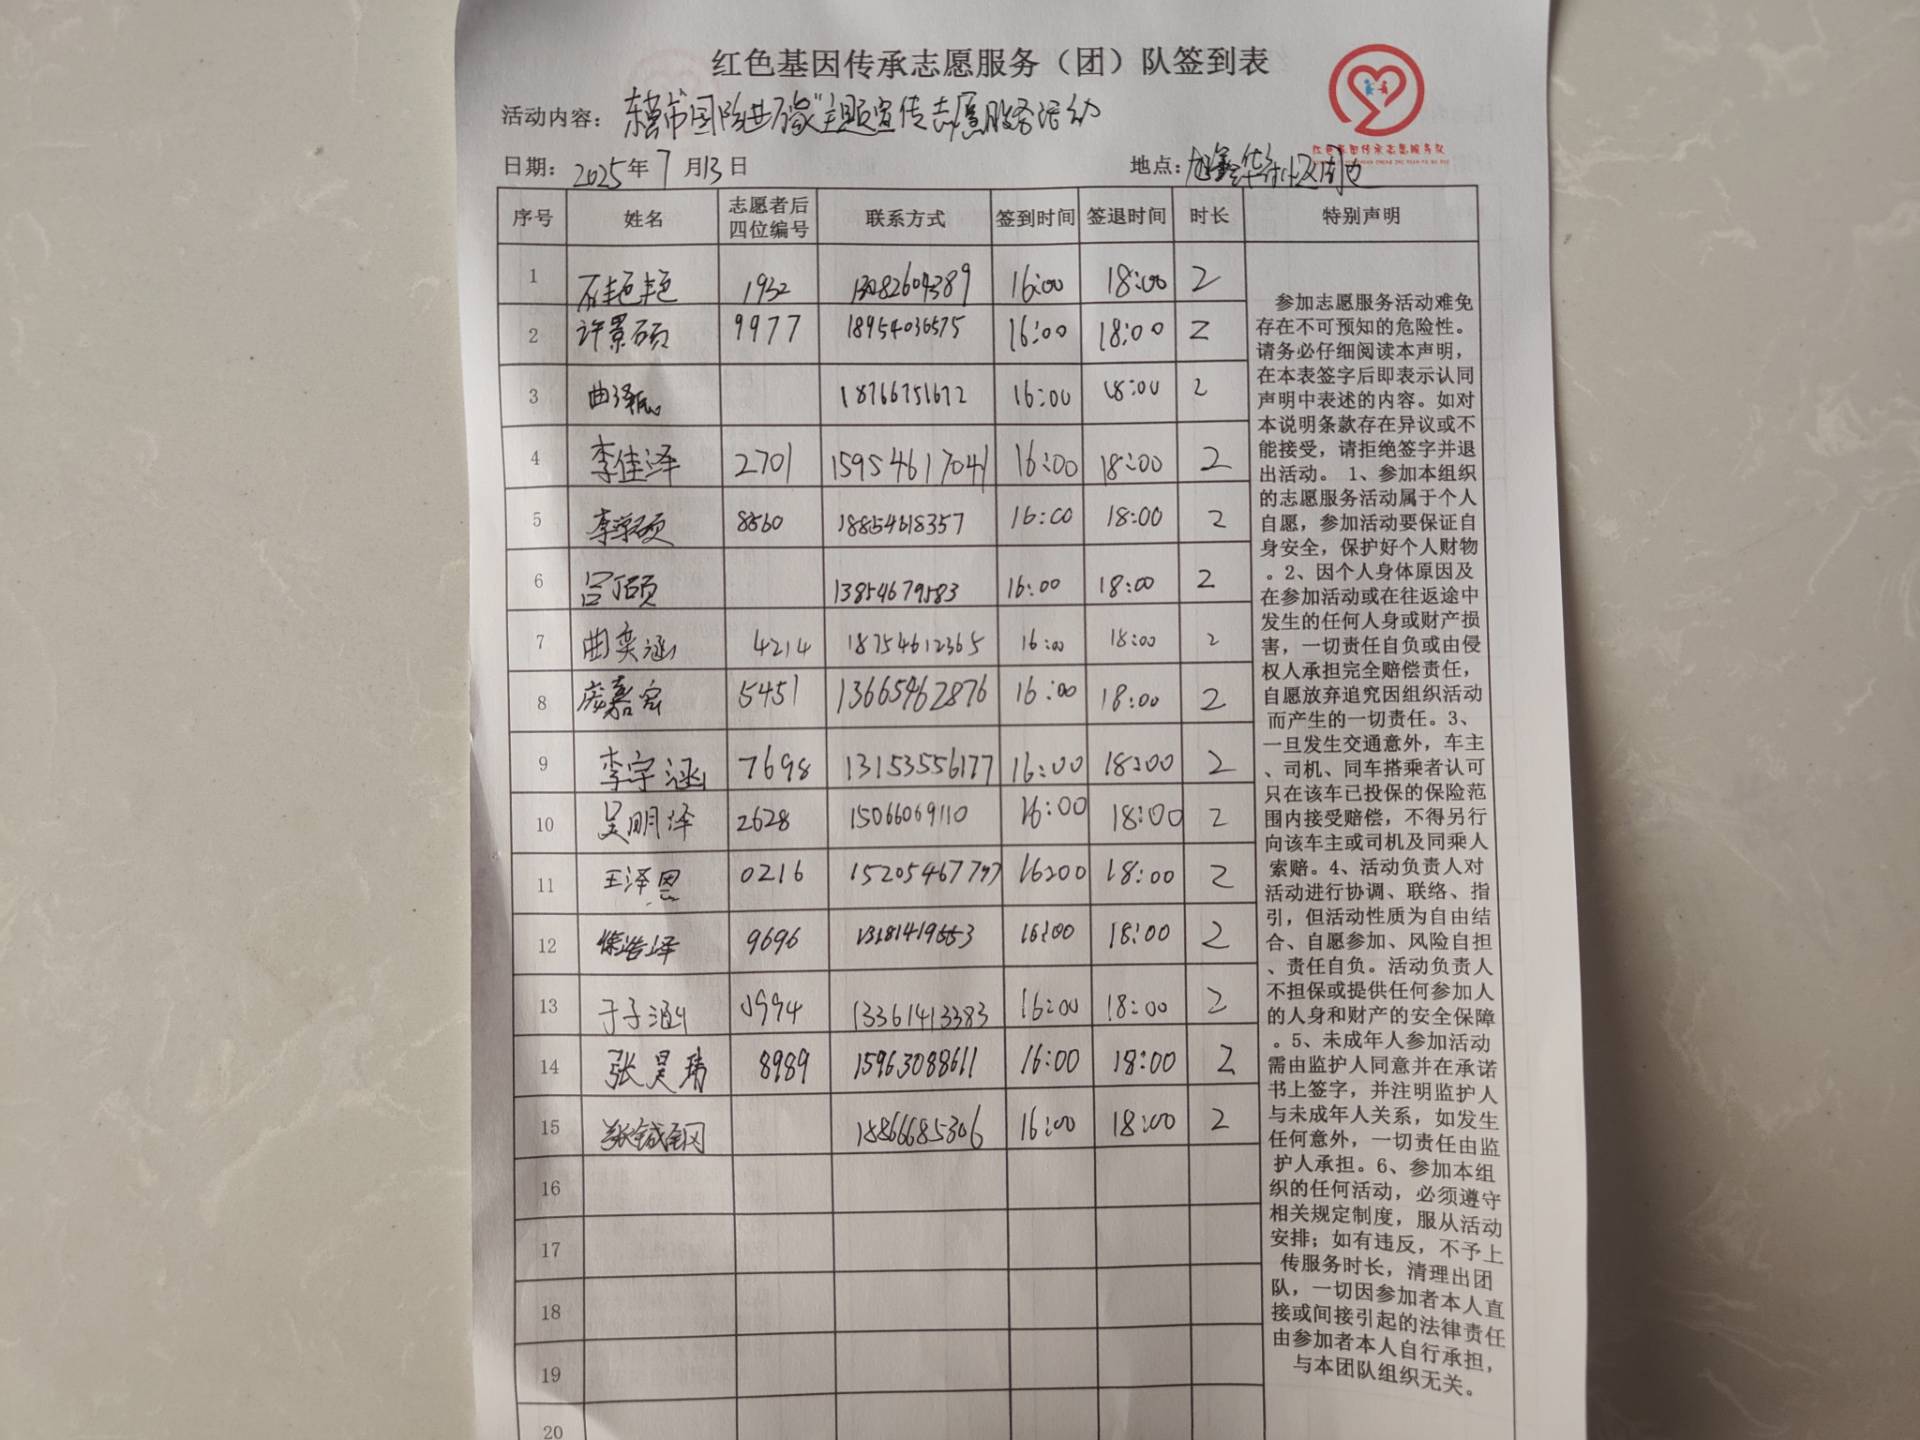 红色基因传承志愿服务（团）队签到表
活动内容： 主题宣传志愿服务活动
红色基因传承志愿服务队
日期：2025年7月13日 地点：小区周边
序号 姓名 志愿者后四位编号 联系方式 签到时间 签退时间 时长 特别声明
1 石艳艳 1932 16:00 18:00 2
2 许景硕 9977 18954036575 16:00 18:00 2
3 曲泽 18766751672 16:00 18:00 2
4 李佳泽 2701 15954617041 16:00 18:00 2
5 李学硕 8560 18854618357 16:00 18:00 2
6 吕丁硕 13854679583 16:00 18:00 2
7 曲奕涵 4214 18754612365 16:00 18:00 2
8 庞嘉宏 5451 13665462876 16:00 18:00 2
9 李宇涵 7698 13153556177 16:00 18:00 2
10 吴明泽 2628 15066069110 16:00 18:00 2
11 王泽恩 0216 16:00 18:00 2
12 徐浩泽 9696 16:00 18:00 2
13 于子涵 13361413383 16:00 18:00 2
14 张昊玮 8989 15963088611 16:00 18:00 2
15 张铖钢 18866685306 16:00 18:00 2
16
17
18
19
20
参加志愿服务活动难免
存在不可预知的危险性。
请务必仔细阅读本声明，
在本表签字后即表示认同
声明中表述的内容。如对
本说明条款存在异议或不
能接受，请拒绝签字并退
出活动。 1、参加本组织
的志愿服务活动属于个人
自愿，参加活动要保证自
身安全，保护好个人财物
。2、因个人身体原因及
在参加活动或在往返途中
发生的任何人身或财产损
害，一切责任自负或由侵
权人承担完全赔偿责任，
自愿放弃追究因组织活动
而产生的一切责任。3、
一旦发生交通意外，车主
、司机、同车搭乘者认可
只在该车已投保的保险范
围内接受赔偿，不得另行
向该车主或司机及同乘人
索赔。4、活动负责人对
活动进行协调、联络、指
引，但活动性质为自由结
合、自愿参加、风险自担
、责任自负。活动负责人
不担保或提供任何参加人
的人身和财产的安全保障
。5、未成年人参加活动
需由监护人同意并在承诺
书上签字，并注明监护人
与未成年人关系，如发生
任何意外，一切责任由监
护人承担。6、参加本组
织的任何活动，必须遵守
相关规定制度，服从活动
安排；如有违反，不予上
传服务时长，清理出团
队，一切因参加者本人直
接或间接引起的法律责任
由参加者本人自行承担，
与本团队组织无关。